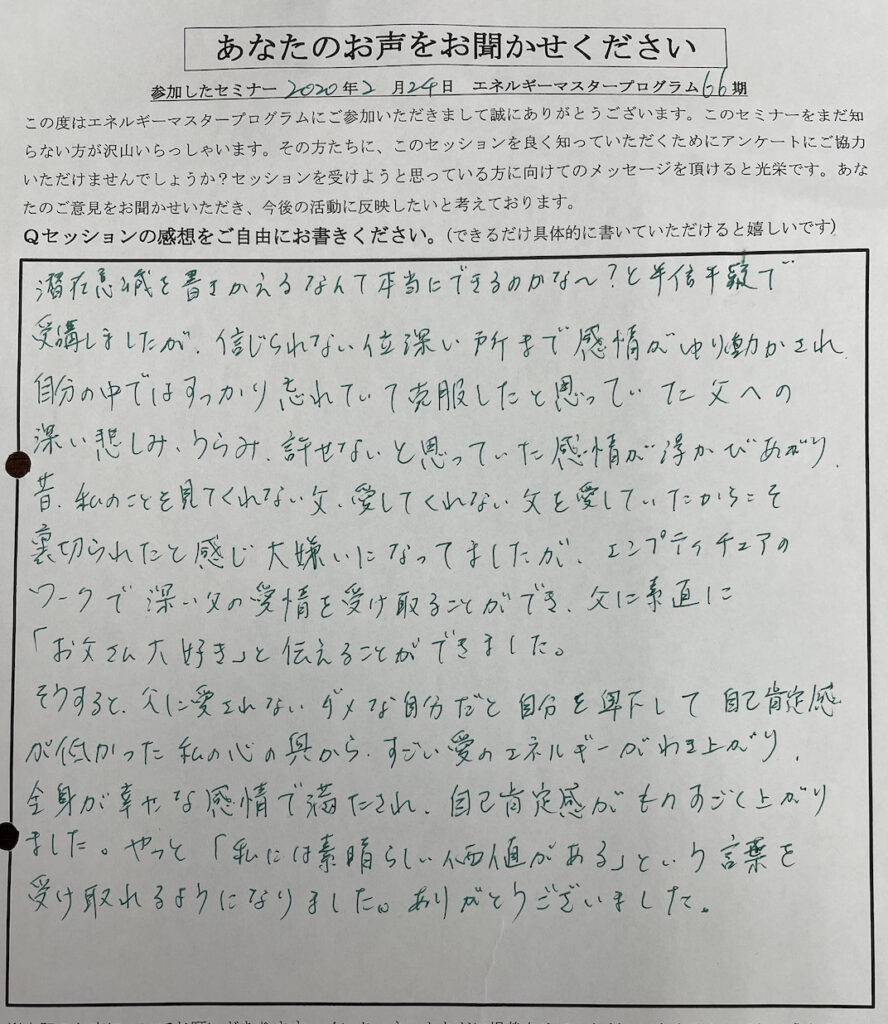 あなたのお声をお聞かせください
参加したセミナー 2020年2月24日 エネルギーマスタープログラム66期
この度はエネルギーマスタープログラムにご参加いただきまして誠にありがとうございます。このセミナーをまだ知
らない方が沢山いらっしゃいます。その方たちに、このセッションを良く知っていただくためにアンケートにご協力
いただけませんでしょうか？セッションを受けようと思っている方に向けてのメッセージを頂けると光栄です。あな
たのご意見をお聞かせいただき、今後の活動に反映したいと考えております。
Qセッションの感想をご自由にお書きください。(できるだけ具体的に書いていただけると嬉しいです)
潜在意識を書きかえるなんて本当にできるのかな〜？と半信半疑で
受講しましたが、信じられない位深い所まで感情がゆり動かされ、
自分の中ではすっかり忘れていて克服したと思っていた父への
深い悲しみ、うらみ、許せないと思っていた感情が浮かびあがり、
昔、私のことを見てくれない父、愛してくれない父を愛していたからこそ
裏切られたと感じ大嫌いになってましたが、エンプティチェアの
ワークで深い父の愛情を受け取ることができ、父に素直に
「お父さん大好き」と伝えることができました。
そうすると、父に愛されないダメな自分だと自分を卑下して自己肯定感
が低かった私の心の奥から、すごい愛のエネルギーがわき上がり、
全身が幸せな感情で満たされ、自己肯定感がものすごく上がり
ました。やっと「私には素晴らしい価値がある」という言葉を
受け取れるようになりました。ありがとうございました。